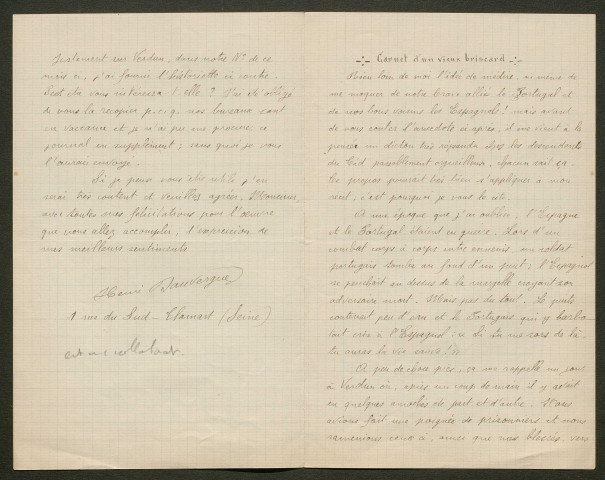 Justement sur Verdun, dans notre No de ce
mois ci, j'ai fourni l'historiette ci contre.
Peut être vous intéressera-t-elle ? J'ai dû
de vous la recopier p.c.q. nos bureaux sont
en vacances et je n'ai pu me procurer ce
journal en supplément ; sans quoi je vous
l'aurais envoyé.
Si je peux vous être utile j'en
serai très content et veuillez agréer, Monsieur,
avec toutes mes félicitations pour l'œuvre
que vous allez accomplir, l'expression de
mes meilleurs sentiments
Henri Dauvergne
1 rue du Sud - Clamart (Seine)
Carnet d'un vieux briscard
Bien loin de moi l'idée de médire, ni même de
me moquer de notre brave allié le Portugal et
de nos bons voisins les Espagnols ! mais avant
de vous conter l'anecdote ci après, il me vient à la
pensée un dicton très répandu chez les descendants
du Cid passablement orgueilleux, chacun sait ça.
Ce propos pourrait très bien s'appliquer à mon
récit, c'est pourquoi je vous le cite.
A une époque que j'ai oubliée, l'Espagne
et le Portugal étaient en guerre. Lors d'un
combat corps à corps entre ennemis, un soldat
portugais tomba au fond d'un puit ; l'Espagnol
se penchait au dessus de la margelle croyant son
adversaire mort. Mais pas du tout. Le puits
contenait peu d'eau et le Portugais qui y barbo-
tait cria à l'Espagnol : « Si tu me sors de là,
tu auras la vie sauve ! »
A peu de chose près, ça me rappelle un jour
à Verdun où, après un coup de main il y avait
eu quelques amochés de part et d'autre. Nous
avions fait une poignée de prisonniers et nous
ramenions ceux-ci, ainsi que nos blessés, vers